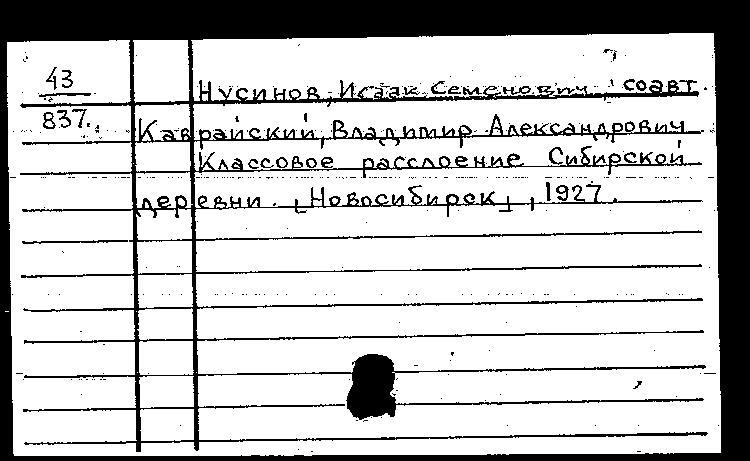 43
Нусинов, Исаак Семенович, соавт.
837.
Каврайский, Владимир Александрович
Классовое расслоение Сибирской
деревни. [Новосибирск], 1927.